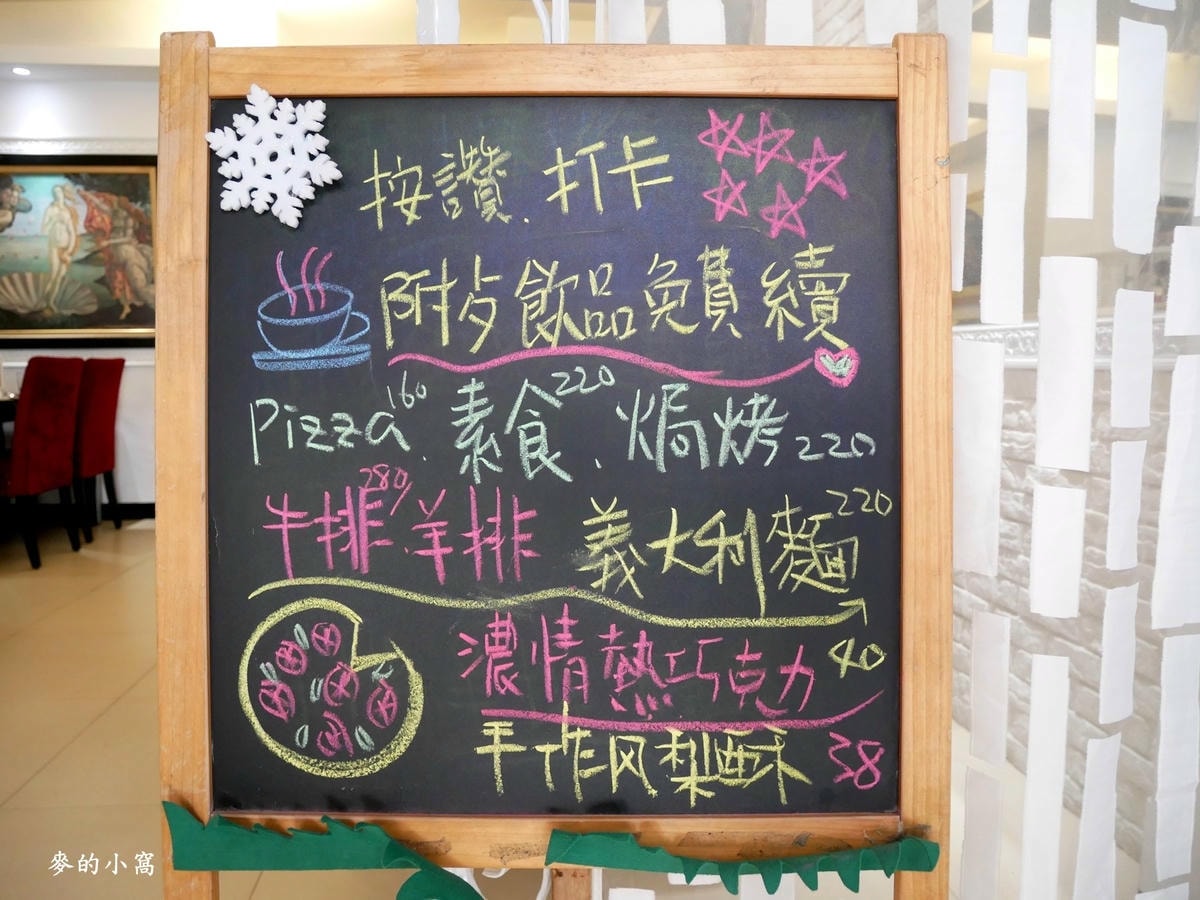 按讚、打卡
附歺飲品免費續
Pizza 160、素食 220、焗烤 220
牛排 280/、羊排 義大利麵 220
濃情熱巧克力 40
手作风梨酥 38
麥的小窩